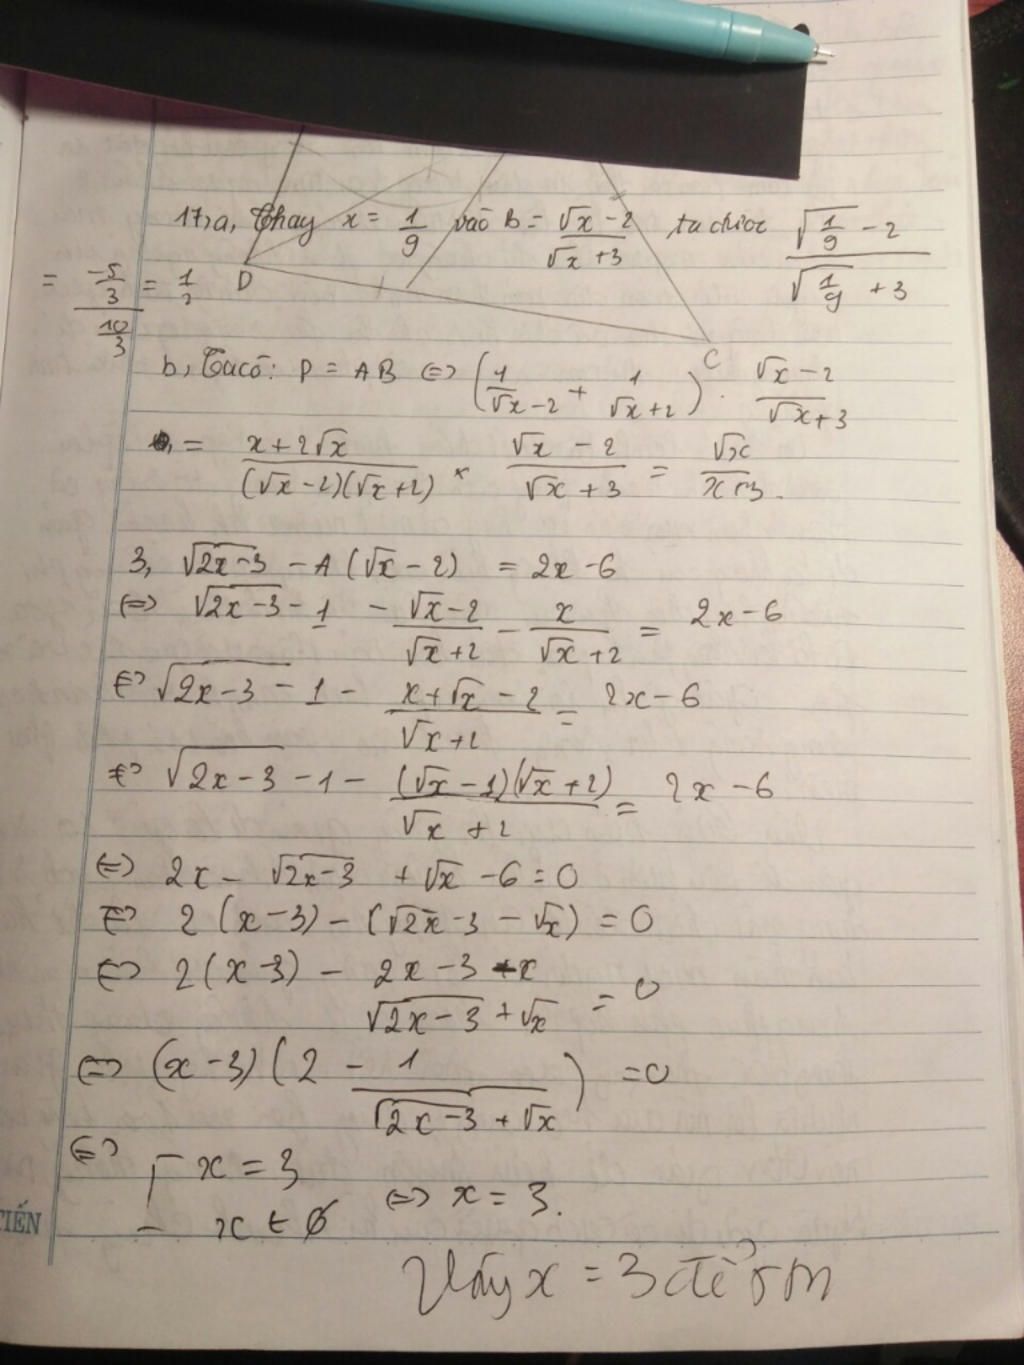 17,a, Thay x = 1/9 vào B = (√x − 2)/(√x + 3) ta được (√(1/9) − 2)/(√(1/9) + 3)
= (−5/3)/(10/3) =
D
C
b, Ta có: P = AB ⇔ (1/(√x − 2) + 1/(√x + 2)) . (√x − 2)/(√x + 3)
= (x + 2√x)/((√x − 2)(√x + 2)) × (√x − 2)/(√x + 3) = √x/
3, √(2x − 3) − A(√x − 2) = 2x − 6
⇔ √(2x − 3) − 1 − (√x − 2)/(√x + 2) − x/(√x + 2) = 2x − 6
⇔ √(2x − 3) − 1 − (x + √x − 2)/(√x + 2) = 2x − 6
⇔ √(2x − 3) − 1 − ((√x − 1)(√x + 2))/(√x + 2) = 2x − 6
⇔ 2x − √(2x − 3) + √x − 6 = 0
⇔ 2(x − 3) − (√(2x − 3) − √x) = 0
⇔ 2(x − 3) − (2x − 3 − x)/(√(2x − 3) + √x) = 0
⇔ (x − 3)(2 − 1/(√(2x − 3) + √x)) = 0
⇔ [ x = 3
x ∈ ∅ ⇔ x = 3.
Vậy x = 3 để
TIẾN